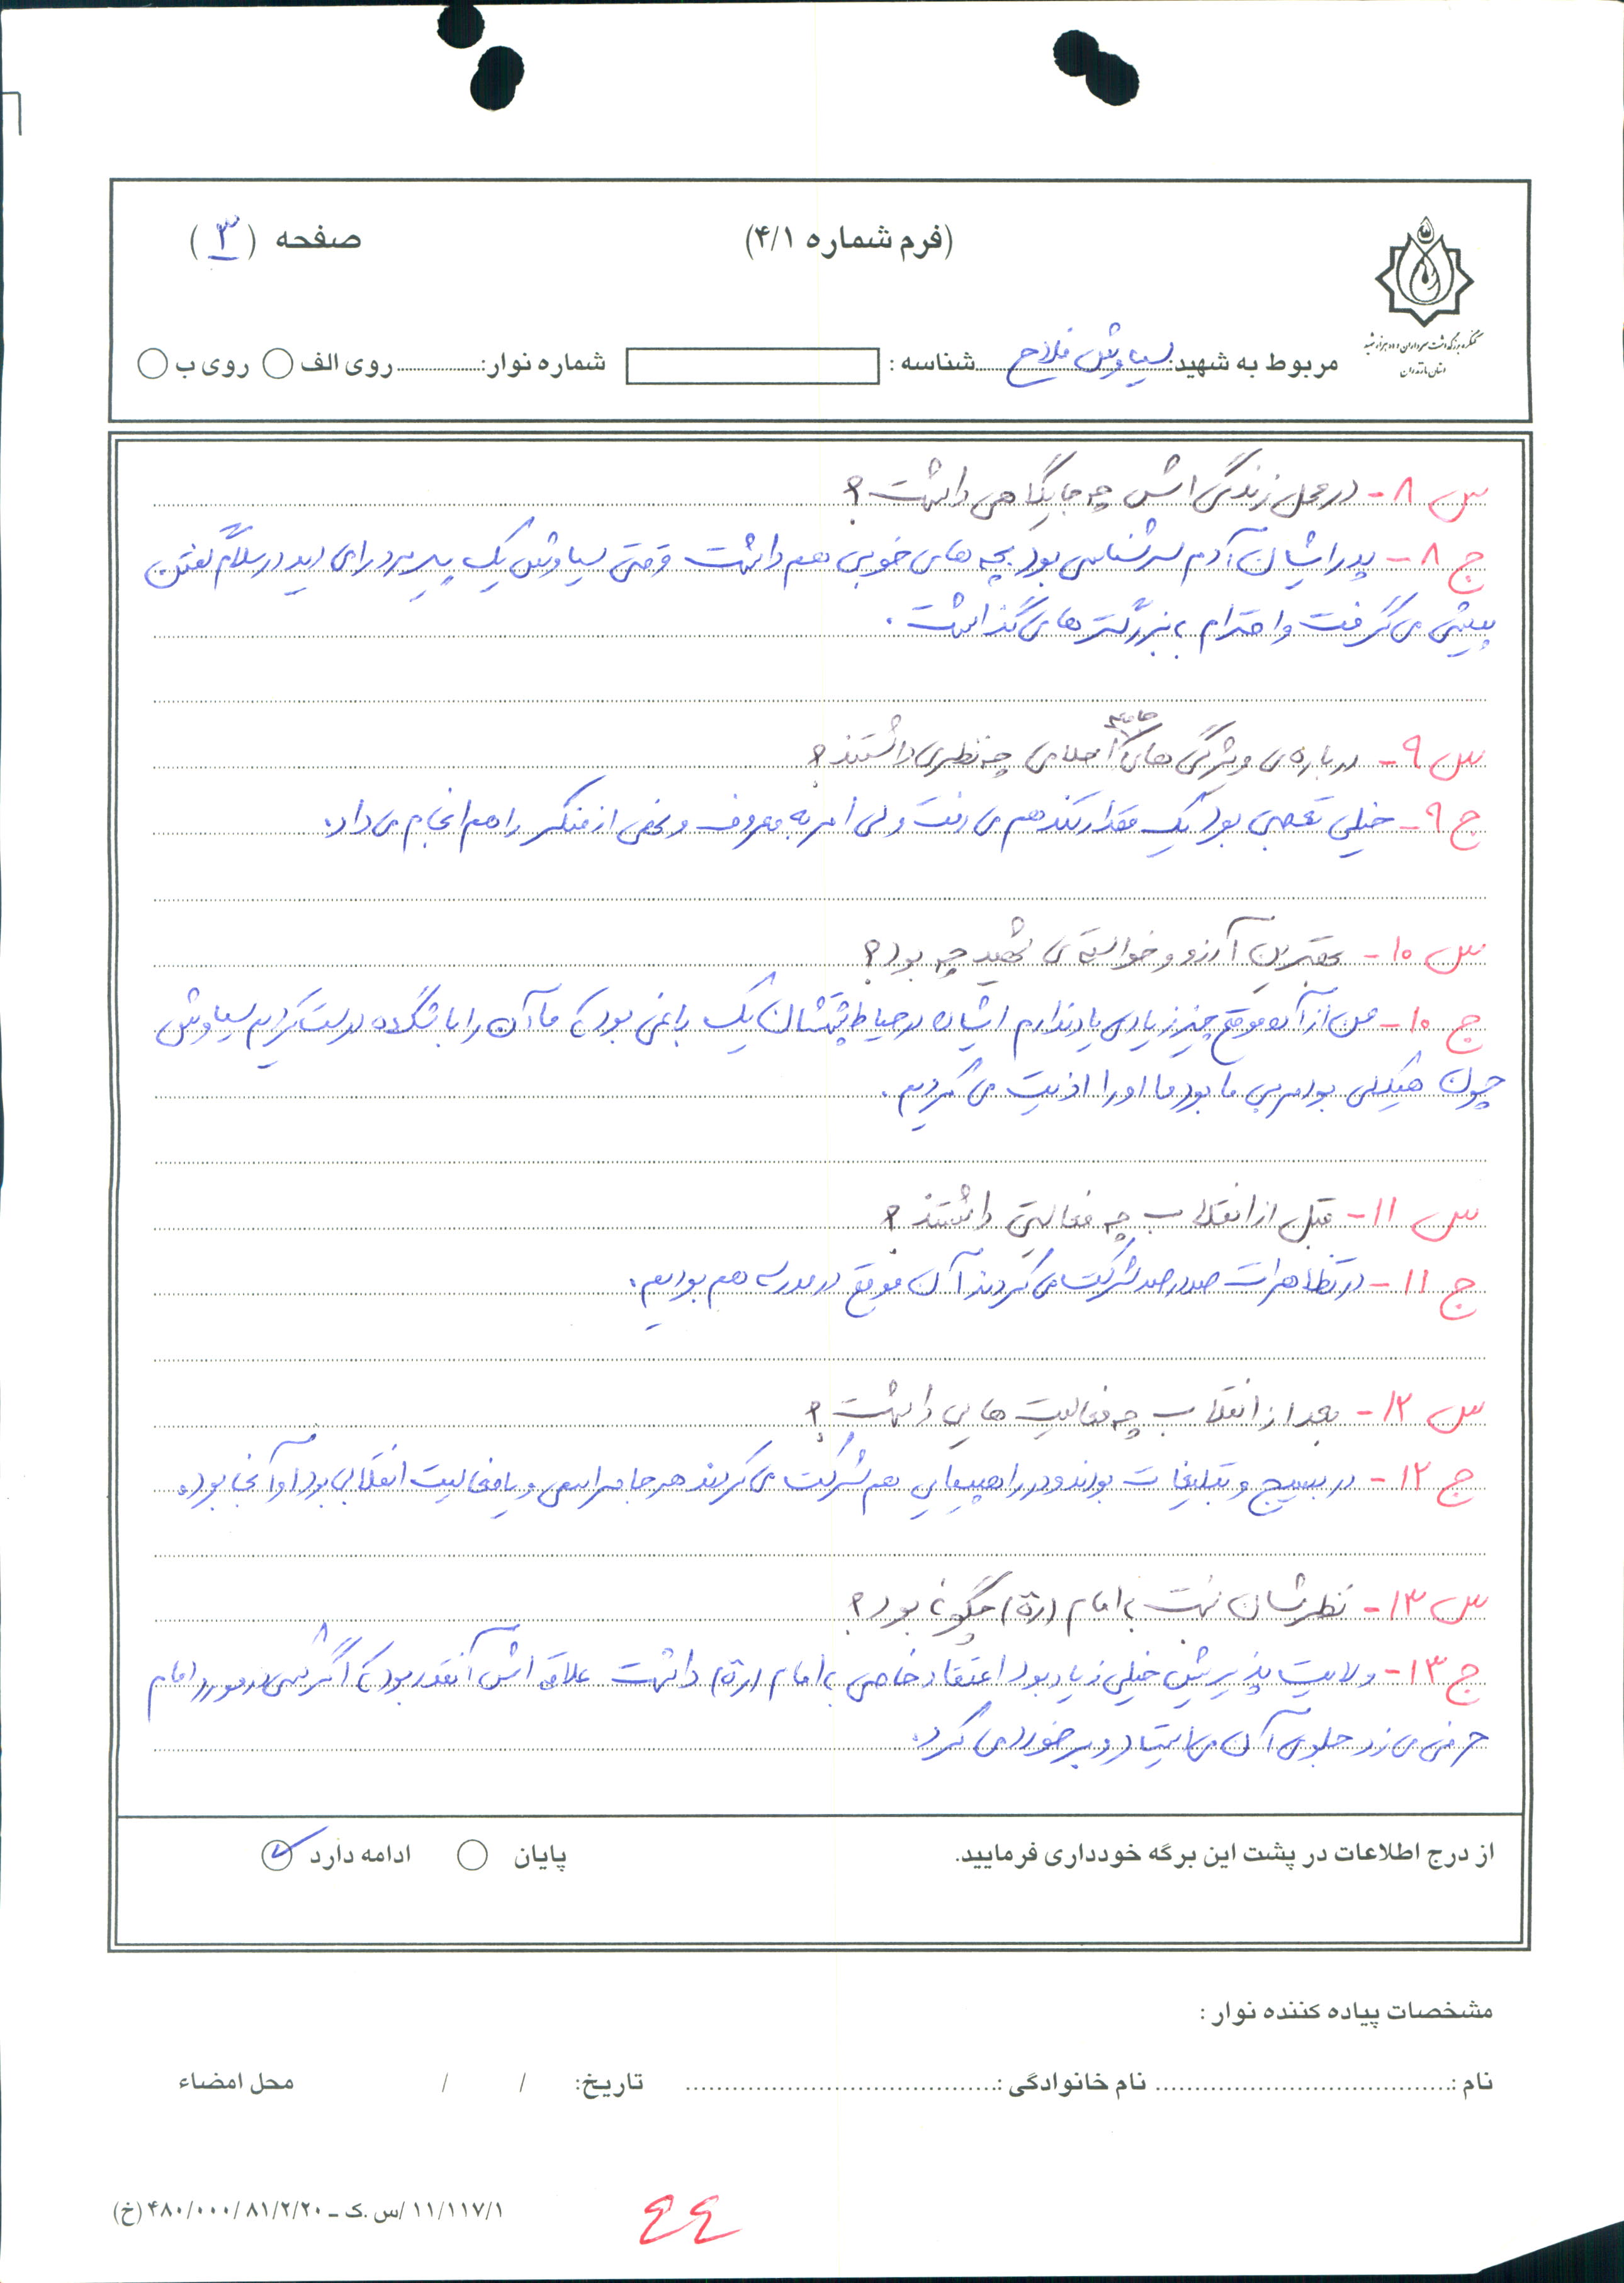 (فرم شماره ۴/۱)
صفحه (۳)
کنگره بزرگداشت سرداران و ده هزار شهید
استان مازندران
مربوط به شهید: سیاوش فلاح شناسه : شماره نوار: روی الف روی ب
س ۸- در محل زندگی اش چه جایگاهی داشت؟
ج ۸- پدر ایشان آدم سرشناسی بود بچه های خوبی هم داشت وقتی سیاوش یک پیرمرد رای دید در سلام گفتن
پیشی می گرفت و احترام به بزرگترها می گذاشت.
س ۹- درباره ی ویژگی های اخلاقی چه نظری داشتند؟
ج ۹- خیلی تعصبی بود یک مقدار تند هم می رفت ولی امر به معروف و نهی از منکر را هم انجام می داد.
س ۱۰- بهترین آرزو و خواسته ی شهید چه بود؟
ج ۱۰- من از آن موقع چیز زیادی یاد ندارم ایشان در حیاط پشتشان یک باغی بود که ما آن را باشگاه درست کردیم سیاوش
چون هیکلی بود مربی ما بود ما او را اذیت می کردیم.
س ۱۱- قبل از انقلاب چه فعالیتی داشتند؟
ج ۱۱- در تظاهرات صد در صد شرکت می کردند آن موقع در مدرسه هم بودیم.
س ۱۲- بعد از انقلاب چه فعالیت هایی داشت؟
ج ۱۲- در بسیج و تبلیغات بودند و در راهپیمایی هم شرکت می کردند هر جا مراسمی و یا فعالیت انقلابی بود او آنجا بود.
س ۱۳- نظرشان نسبت به امام (ره) چگونه بود؟
ج ۱۳- ولایت پذیریش خیلی زیاد بود اعتقاد خاصی به امام (ره) داشت علاقه اش آنقدر بود که اگر کسی در مورد امام
حرفی می زد جلوی آن می ایستاد و برخورد می کرد.
از درج اطلاعات در پشت این برگه خودداری فرمایید.
ادامه دارد
پایان
مشخصات پیاده کننده نوار :
نام : نام خانوادگی : تاریخ: / / محل امضاء
۱۱/۱۱۷/۱/س.ک - ۴۸۰/۰۰۰/۸۱/۲/۲۰ (خ)
٤٤